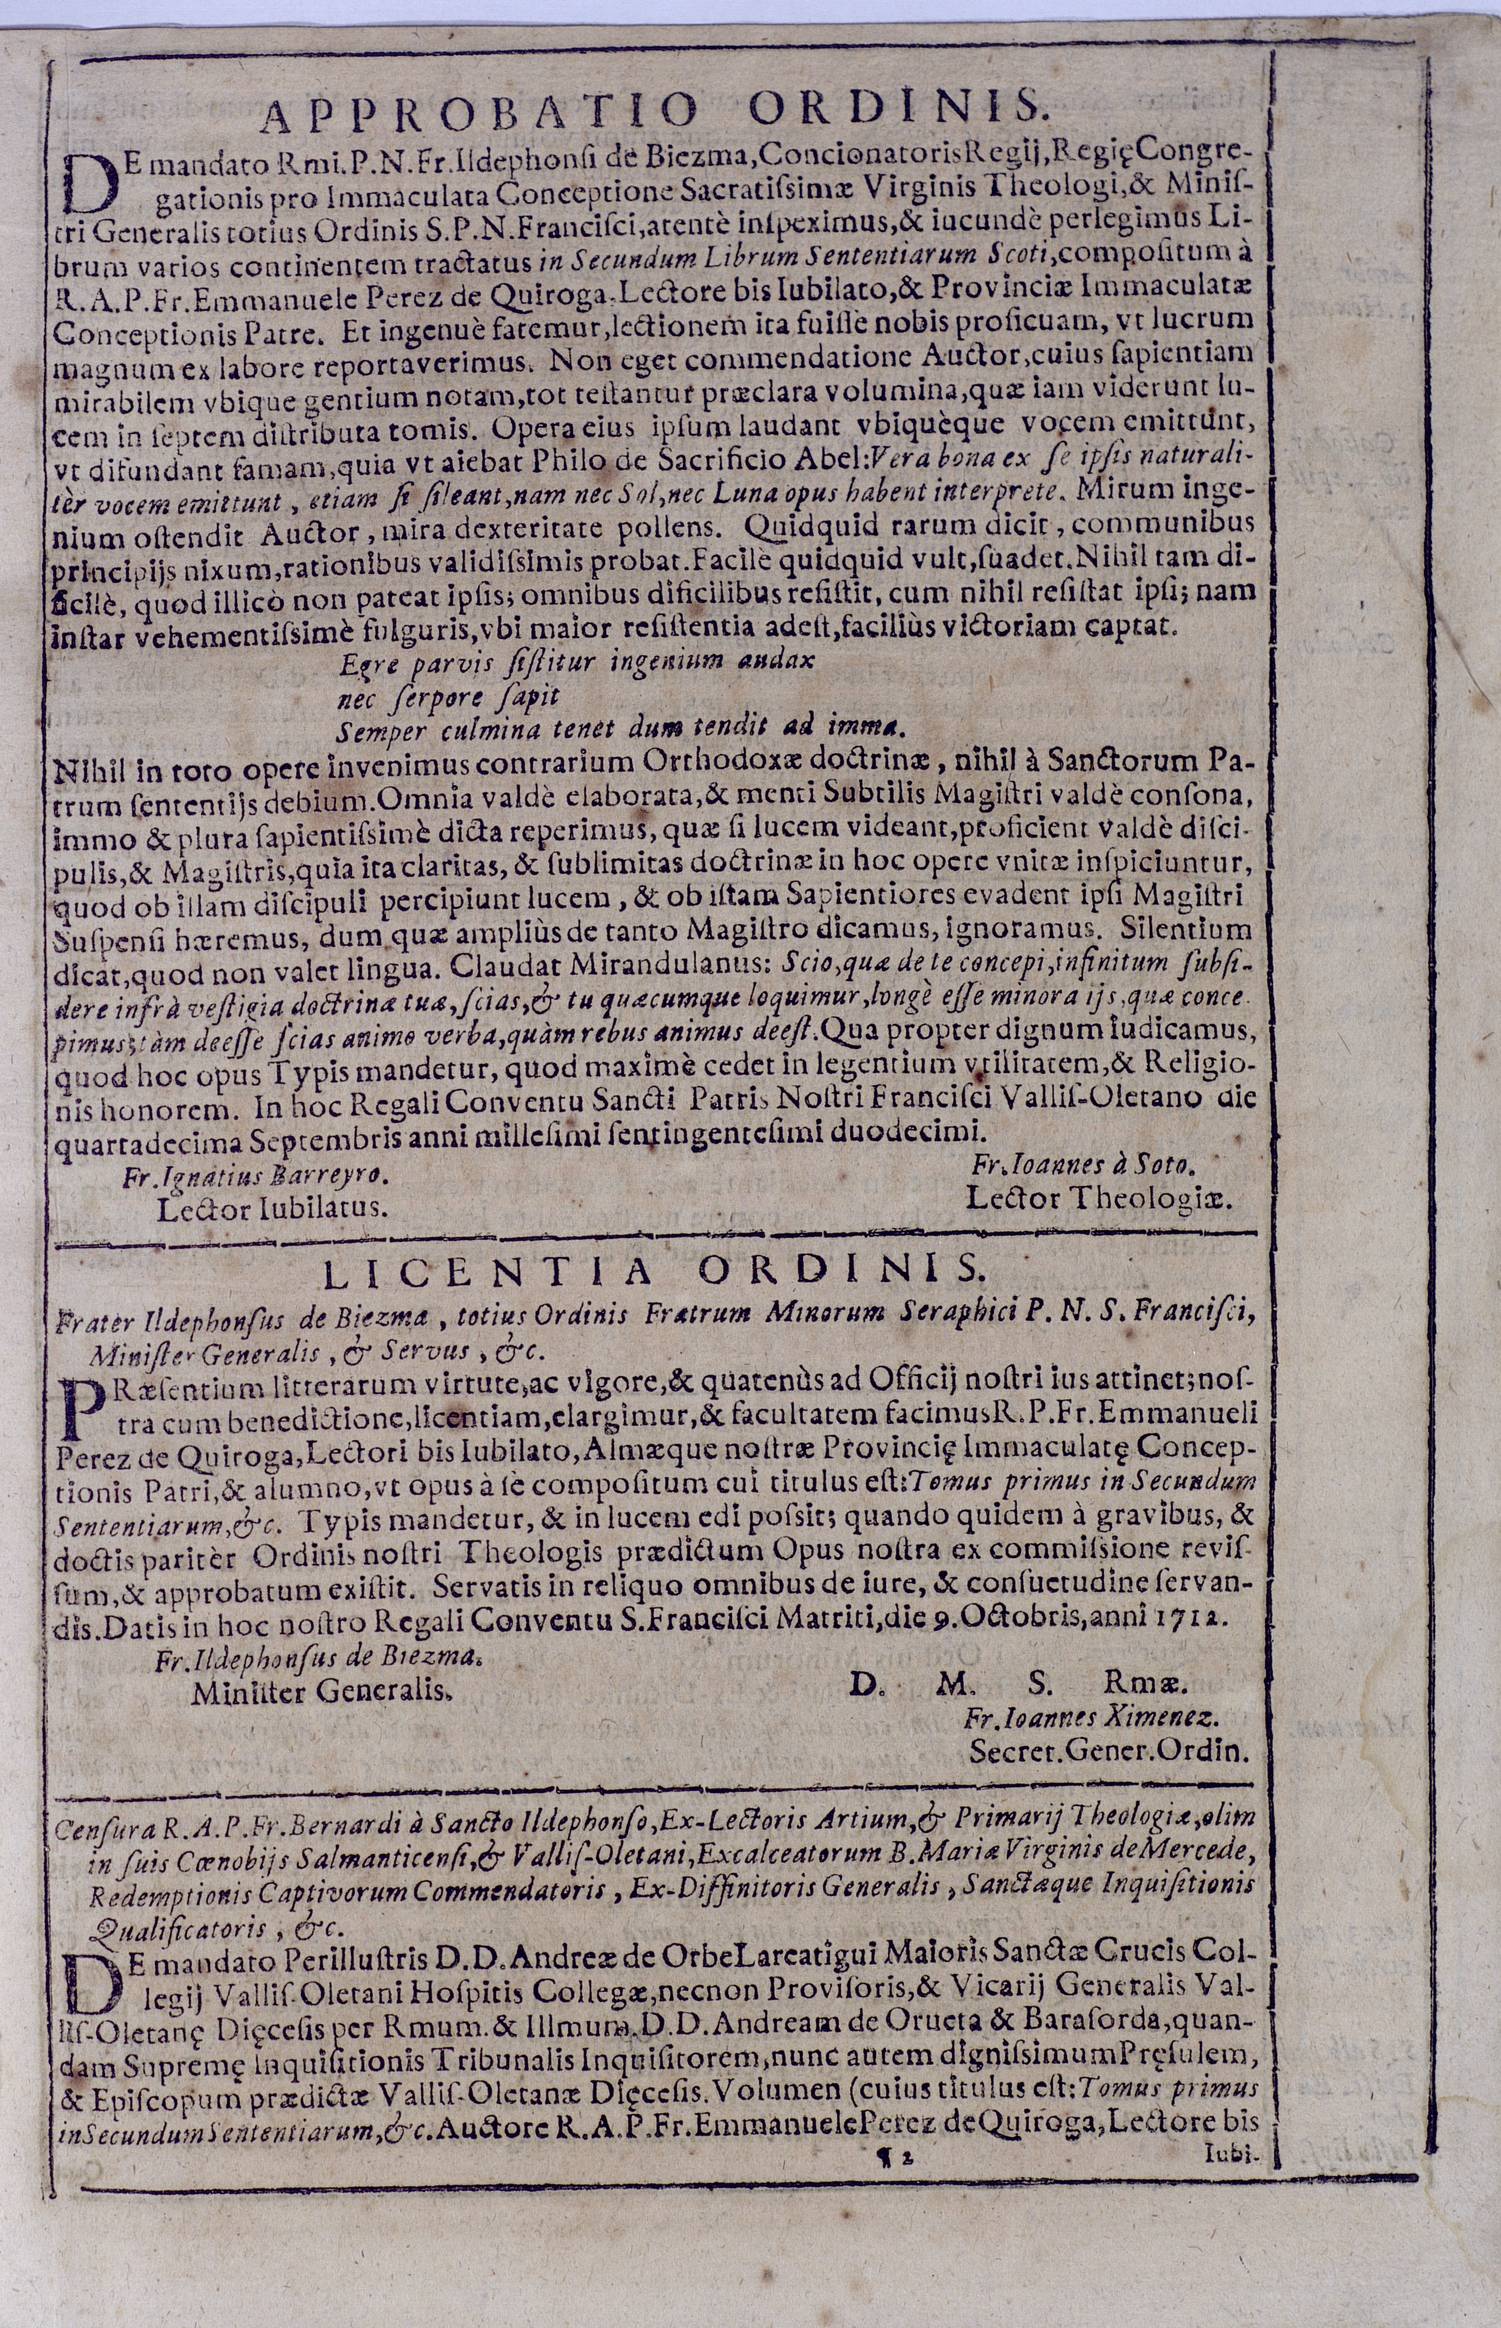 APPROBATIO ORDINIS.
DE mandato Rmi. P. N. Fr. Ildephonſi de Biezma, Concionatoris Regij, Regię Congre-
gationis pro Immaculata Conceptione Sacratiſsimæ Virginis Theologi, & Miniſ-
tri Generalis totius Ordinis S. P. N. Franciſci, atentè inſpeximus, & iucundè perlegimus Li-
brum varios continentem tractatus in Secundum Librum Sententiarum Scoti, compoſitum à
R. A. P. Fr. Emmanuele Perez de Quiroga, Lectore bis Iubilato, & Provinciæ Immaculatæ
Conceptionis Patre. Et ingenuè fatemur, lectionem ita fuiſſe nobis proficuam, vt lucrum
magnum ex labore reportaverimus. Non eget commendatione Auctor, cuius ſapientiam
mirabilem vbique gentium notam, tot teſtantur præclara volumina, quæ iam viderunt lu-
cem in ſeptem diſtributa tomis. Opera eius ipſum laudant vbiquèque vocem emittunt,
vt difundant famam, quia vt aiebat Philo de Sacrificio Abel: Vera bona ex ſe ipſis naturali-
tèr vocem emittunt, etiam ſi ſileant, nam nec Sol, nec Luna opus habent interprete. Mirum inge-
nium oſtendit Auctor, mira dexteritate pollens. Quidquid rarum dicit, communibus
principijs nixum, rationibus validiſsimis probat. Facilè quidquid vult, ſuadet. Nihil tam di-
ficilè, quod illicò non pateat ipſis; omnibus dificilibus reſiſtit, cum nihil reſiſtat ipſi; nam
inſtar vehementiſsimè fulguris, vbi maior reſiſtentia adeſt, faciliùs victoriam captat.
Egre parvis ſiſtitur ingenium audax
nec ſerpere ſapit
Semper culmina tenet dum tendit ad imma.
Nihil in toto opere invenimus contrarium Orthodoxæ doctrinæ, nihil à Sanctorum Pa-
trum ſententijs debium. Omnia valdè elaborata, & menti Subtilis Magiſtri valdè conſona,
immo & plura ſapientiſsimè dicta reperimus, quæ ſi lucem videant, proficient valdè diſci-
pulis, & Magiſtris, quia ita claritas, & ſublimitas doctrinæ in hoc opere vnitæ inſpiciuntur,
quod ob illam diſcipuli percipiunt lucem, & ob iſtam Sapientiores evadent ipſi Magiſtri
Suſpenſi hæremus, dum quæ ampliùs de tanto Magiſtro dicamus, ignoramus. Silentium
dicat, quod non valet lingua. Claudat Mirandulanus: Scio, quæ de te concepi, infinitum ſubſi-
dere infrà veſtigia doctrinæ tuæ, ſcias, & tu quæcumque loquimur, longè eſſe minora ijs, quæ conce
pimus; tàm deeſſe ſcias animo verba, quàm rebus animus deeſt. Qua propter dignum iudicamus,
quod hoc opus Typis mandetur, quod maximè cedet in legentium vtilitatem, & Religio-
nis honorem. In hoc Regali Conventu Sancti Patris Noſtri Franciſci Valliſ-Oletano die
quartadecima Septembris anni milleſimi ſentingenteſimi duodecimi.
Fr. Ignatius Barreyro. Fr. Ioannes à Soto.
Lector Iubilatus. Lector Theologiæ.
LICENTIA ORDINIS.
Frater Ildephonſus de Biezma, totius Ordinis Fratrum Minorum Seraphici P. N. S. Franciſci,
Miniſter Generalis, & Servus, &c.
PRæſentium litterarum virtute, ac vigore, & quatenùs ad Officij noſtri ius attinet; noſ-
tra cum benedictione, licentiam, elargimur, & facultatem facimus R. P. Fr. Emmanueli
Perez de Quiroga, Lectori bis Iubilato, Almæque noſtræ Provincię Immaculatę Concep-
tionis Patri, & alumno, vt opus à ſè compoſitum cui titulus eſt: Tomus primus in Secundum
Sententiarum, &c. Typis mandetur, & in lucem edi poſsit; quando quidem à gravibus, &
doctis paritèr Ordinis noſtri Theologis prædictum Opus noſtra ex commiſsione reviſ-
ſum, & approbatum exiſtit. Servatis in reliquo omnibus de iure, & conſuetudine ſervan-
dis. Datis in hoc noſtro Regali Conventu S. Franciſci Matriti, die 9. Octobris, anni 1712.
Fr. Ildephonſus de Biezma.
Miniſter Generalis. D. M. S. Rmæ.
Fr. Ioannes Ximenez.
Secret. Gener. Ordin.
Cenſura R. A. P. Fr. Bernardi à Sancto Ildephonſo, Ex-Lectoris Artium, & Primarij Theologiæ, olim
in ſuis Cœnobijs Salmanticenſi, & Valliſ-Oletani, Excalceatorum B. Mariæ Virginis de Mercede,
Redemptionis Captivorum Commendatoris, Ex-Diffinitoris Generalis, Sanctæque Inquiſitionis
Qualificatoris, &c.
DE mandato Perilluſtris D. D. Andreæ de Orbe Larcatigui Maioris Sanctæ Crucis Col-
legij Valliſ-Oletani Hoſpitis Collegæ, necnon Proviſoris, & Vicarij Generalis Val-
liſ-Oletanę Dięceſis per Rmum. & Illmum. D. D. Andream de Orueta & Baraſorda, quan-
dam Supremę Inquiſitionis Tribunalis Inquiſitorem, nunc autem digniſsimum Pręſulem,
& Epiſcopum prædictæ Valliſ-Oletanæ Dięceſis. Volumen (cuius titulus eſt: Tomus primus
in Secundum Sententiarum, &c. Auctore R. A. P. Fr. Emmanuele Perez de Quiroga, Lectore bis
¶ 2 Iubi-